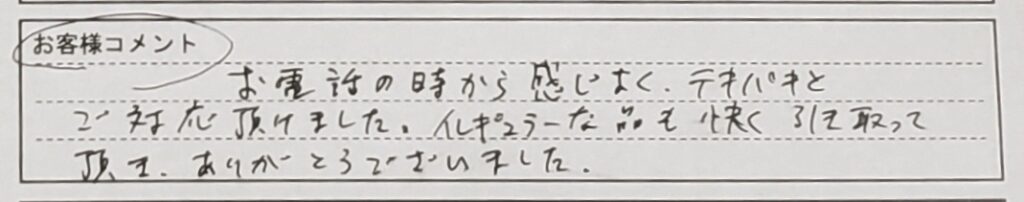 お客様コメント
お電話の時から感じよく、テキパキと
ご対応頂けました。イレギュラーな品も快く引き取って
頂き、ありがとうございました。